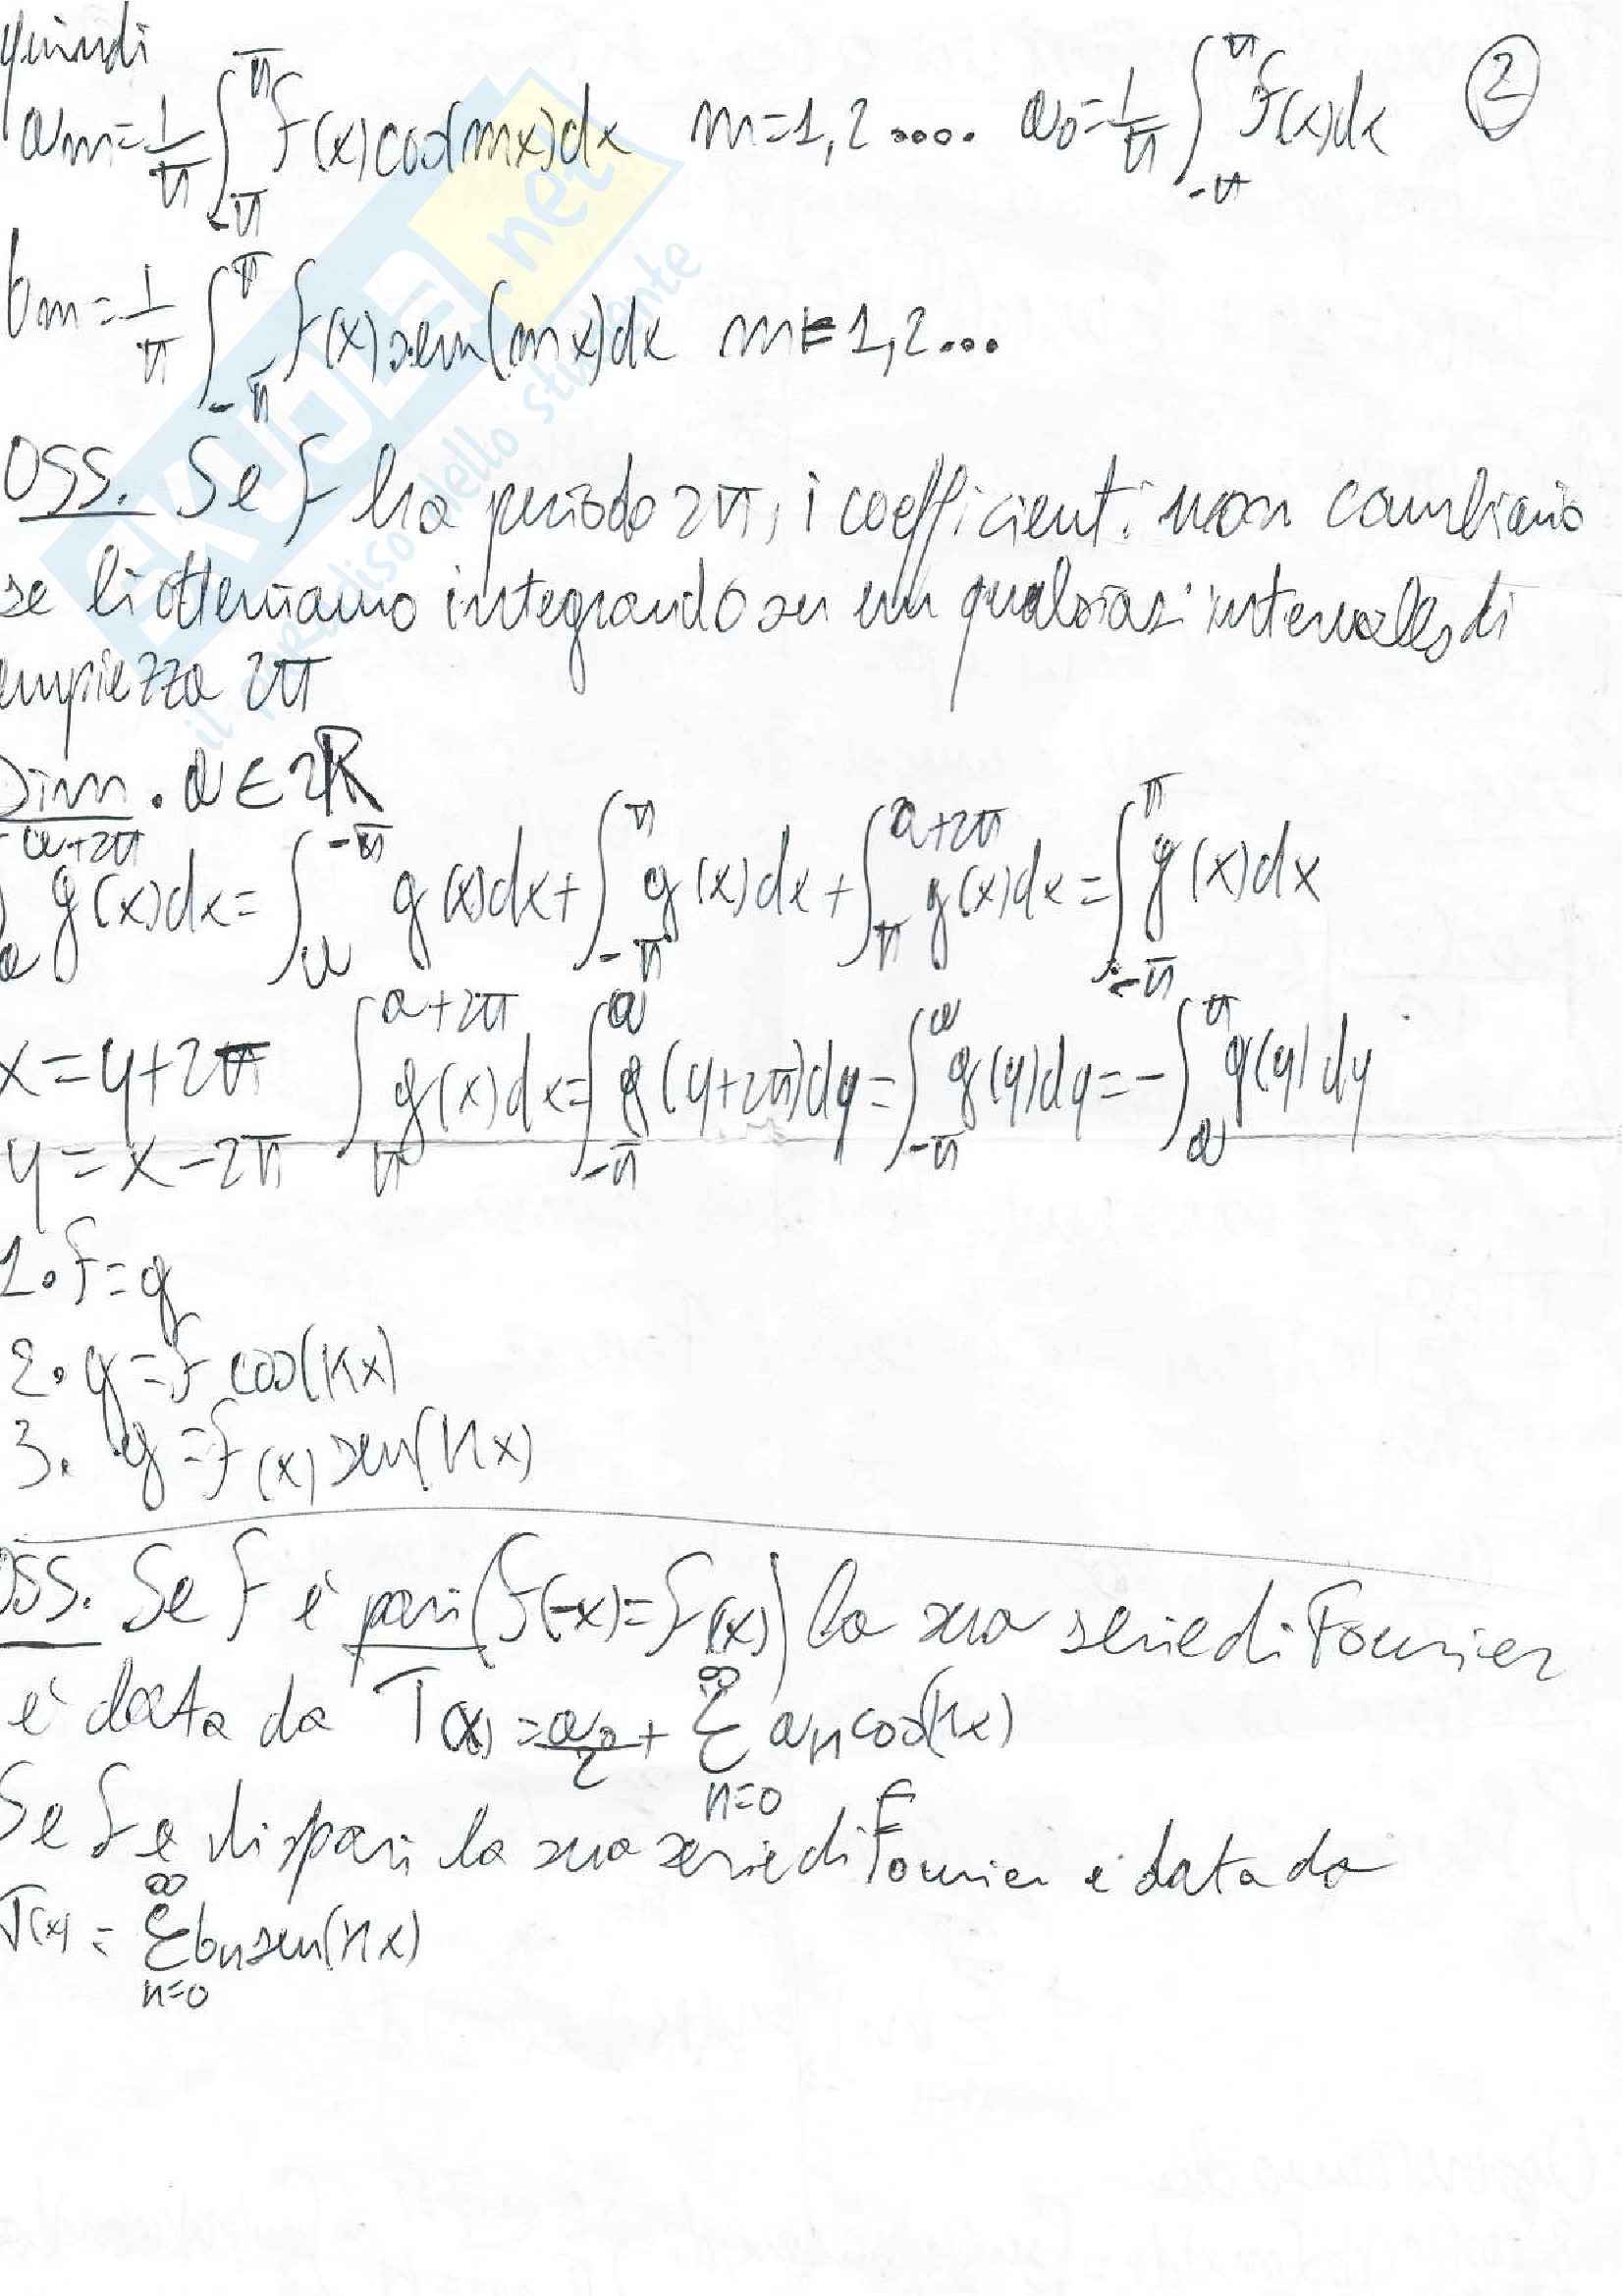 quindi
am=1/π ∫_{-π}^{π} f(x)cos(mx)dx m=1,2.... a0=1/π ∫_{-π}^{π} f(x)dx ②
bm=1/π ∫_{-π}^{π} f(x)sen(mx)dx m=1,2...
OSS. Se f ha periodo 2π, i coefficienti non cambiano
se li otteniamo integrando su un qualsiasi intervallo di
ampiezza 2π
Dim. a∈ℝ
∫_{a}^{a+2π} g(x)dx=∫_{a}^{-π} g(x)dx+∫_{-π}^{π} g(x)dx+∫_{π}^{a+2π} g(x)dx=∫_{-π}^{π} g(x)dx
x=y+2π ∫_{π}^{a+2π} g(x)dx=∫_{-π}^{a} g(y+2π)dy=∫_{-π}^{a} g(y)dy=-∫_{a}^{π} g(y)dy
y=x-2π
1. f=g
2. g=f cos(kx)
3. g=f(x) sen(kx)
OSS. Se f è pari (f(-x)=f(x)) la sua serie di Fourier
è data da T(x)=a0/2+∑_{n=0}^{∞} an cos(nx)
Se f è dispari la sua serie di Fourier è data da
T(x)=∑_{n=0}^{∞} bn sen(nx)
SKUOLA.net
il paradiso dello studente